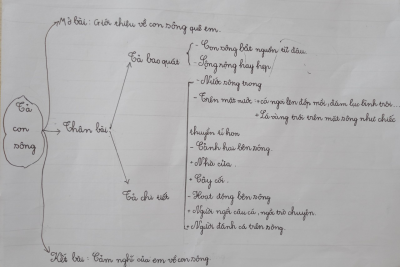 Mở bài: Giới thiệu về con sông quê em.
Tả
con
sông
Thân bài:
Tả bao quát
- Con sông bắt nguồn từ đâu.
- Sông rộng hay hẹp.
Tả chi tiết
- Nước sông trong
- Trên mặt nước → cá ngoi lên đớp mồi, đám lục bình trôi...
+ Lá vàng trôi trên mặt sông như chiếc
thuyền tí hon
- Cảnh hai bên sông.
+ Nhà cửa...
+ Cây cối...
- Hoạt động bên sông
+ Người ngồi câu cá, ngồi trò chuyện.
+ Người đánh cá trên sông.
Kết bài: Cảm nghĩ của em về con sông